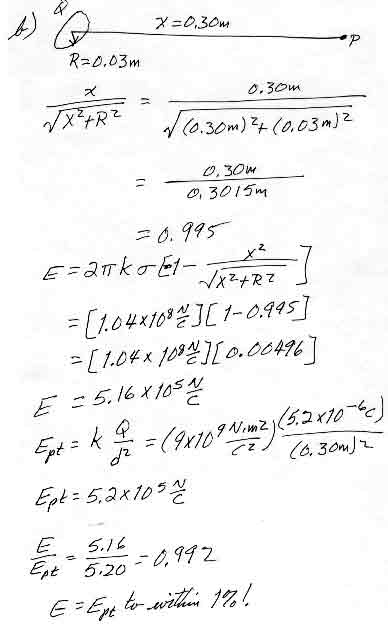 b) Q x = 0.30m P
R = 0.03m
x / √(x²+R²) = 0.30m / √((0.30m)²+(0.03m)²)
= 0.30m / 0.3015m
= 0.995
E = 2πkσ[1 - x² / √(x²+R²)]
= [1.04×10⁸ N/C][1 - 0.995]
= [1.04 × 10⁸ N/C][0.00496]
E = 5.16 × 10⁵ N/C
Ept = k Q/d² = (9×10⁹ N·m²/C²) (5.2×10⁻⁶C) / (0.30m)²
Ept = 5.2×10⁵ N/C
E/Ept = 5.16/5.20 = 0.992
E = Ept to within 1%!